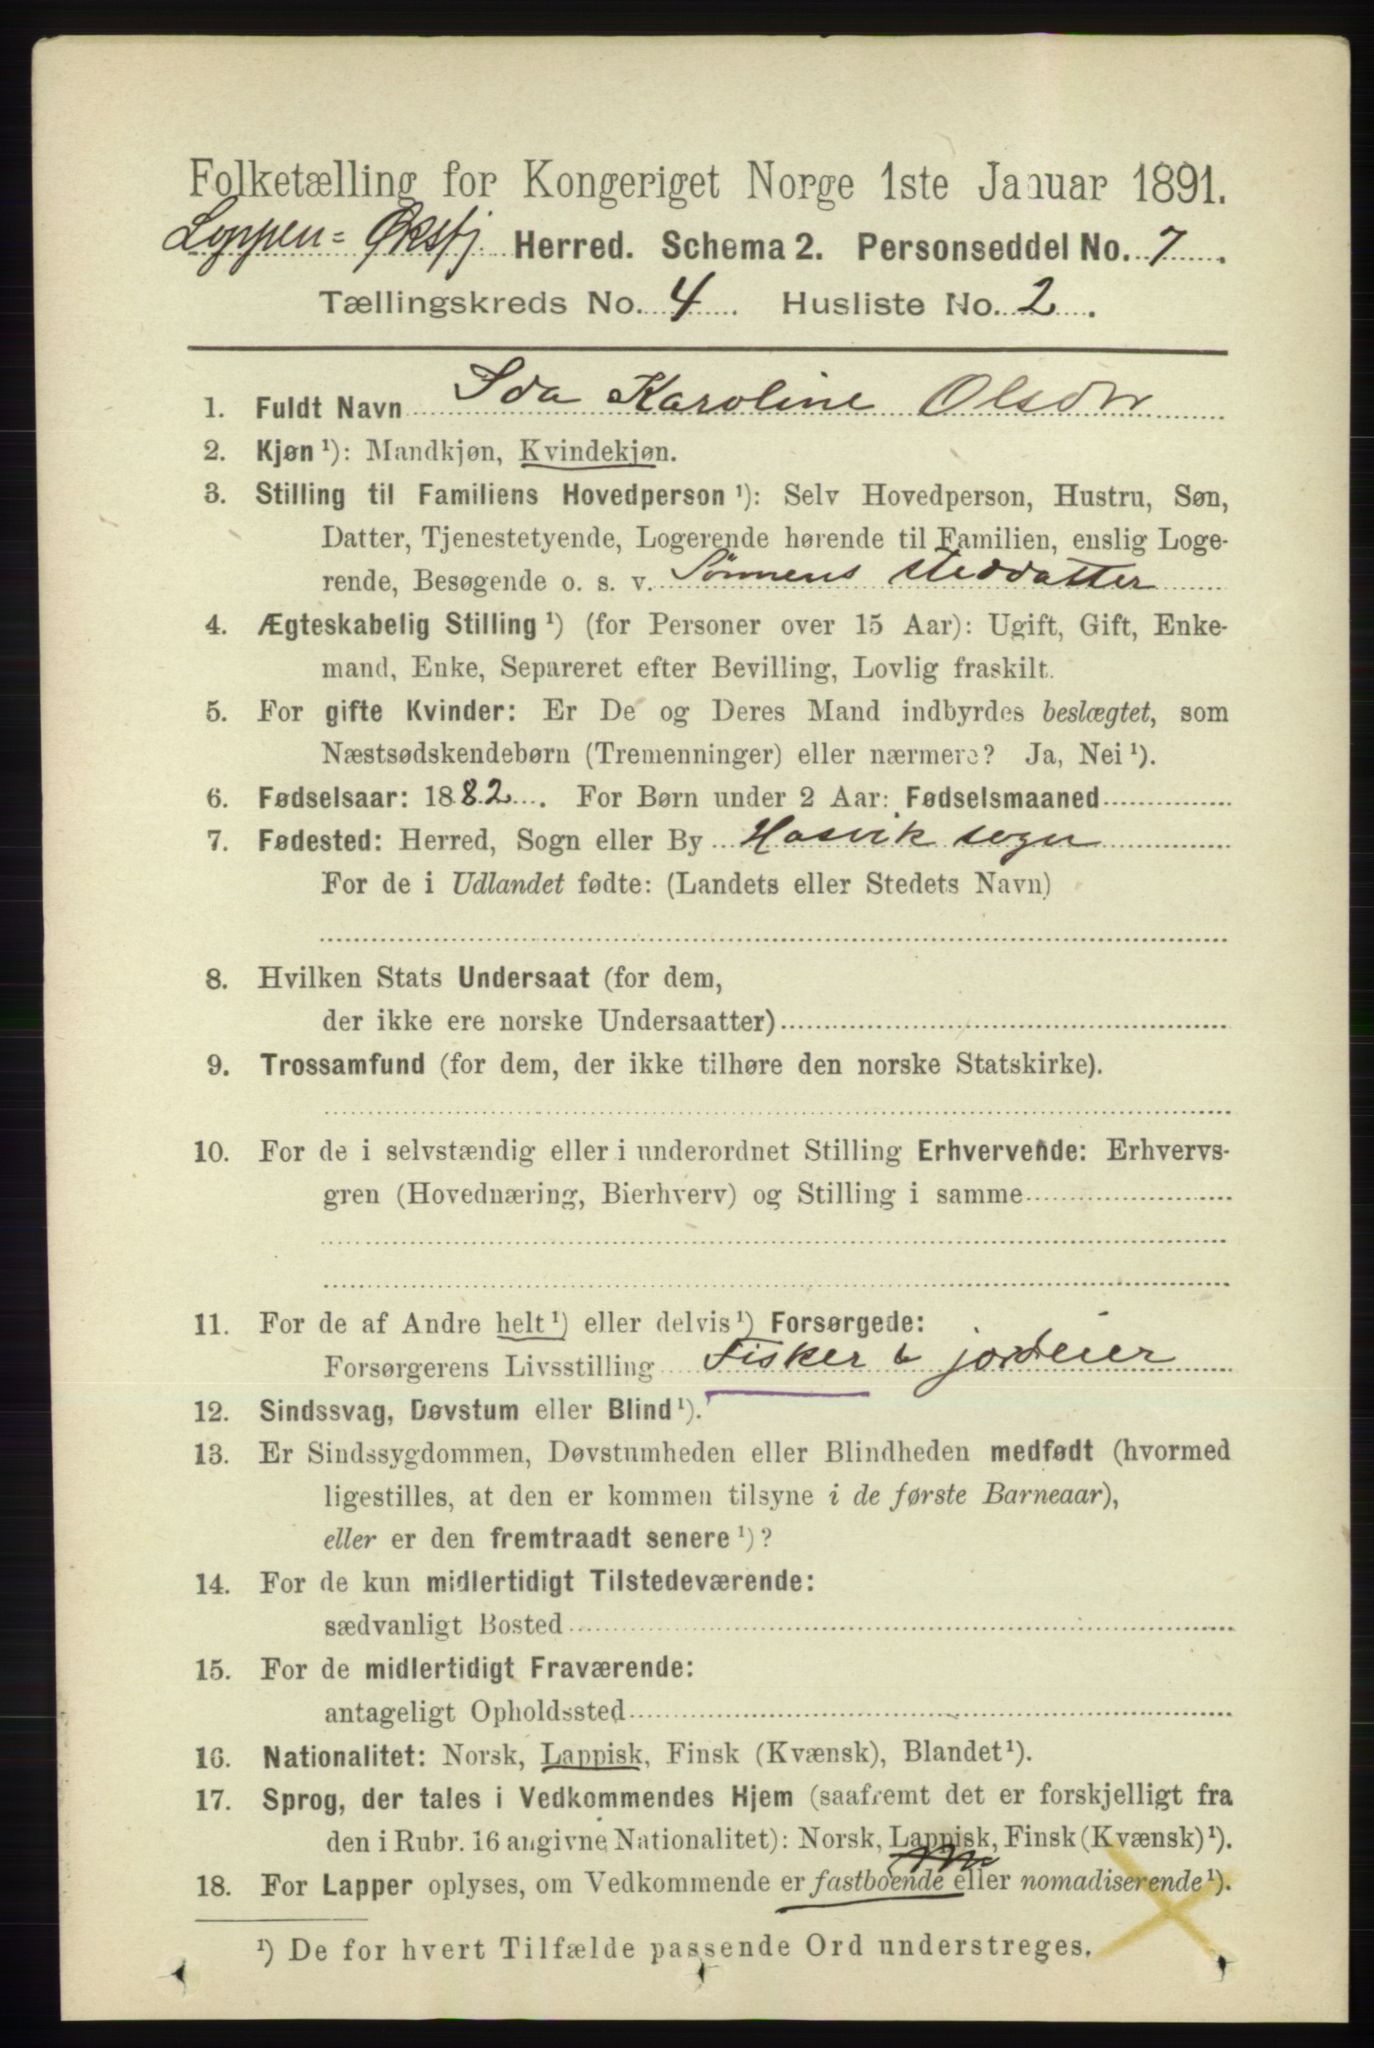 Folketælling for Kongeriget Norge 1ste Januar 1891.
Loppen=Øksfj. Herred. Schema 2. Personseddel No. 7.
Tællingskreds No. 4. Husliste No. 2.
1. Fuldt Navn Ida Karoline Olsdtr
2. Kjøn ¹): Mandkjøn, Kvindekjøn.
3. Stilling til Familiens Hovedperson ¹): Selv Hovedperson, Hustru, Søn,
Datter, Tjenestetyende, Logerende hørende til Familien, enslig Loge-
rende, Besøgende o. s. v. Sønnens steddatter
4. Ægteskabelig Stilling ¹) (for Personer over 15 Aar): Ugift, Gift, Enke-
mand, Enke, Separeret efter Bevilling, Lovlig fraskilt.
5. For gifte Kvinder: Er De og Deres Mand indbyrdes beslægtet, som
Næstsødskendebørn (Tremenninger) eller nærmere? Ja, Nei ¹).
6. Fødselsaar: 1882. For Børn under 2 Aar: Fødselsmaaned
7. Fødested: Herred, Sogn eller By Hasvik sogn
For de i Udlandet fødte: (Landets eller Stedets Navn)
8. Hvilken Stats Undersaat (for dem,
der ikke ere norske Undersaatter)
9. Trossamfund (for dem, der ikke tilhøre den norske Statskirke).
10. For de i selvstændig eller i underordnet Stilling Erhvervende: Erhvervs-
gren (Hovednæring, Bierhverv) og Stilling i samme
11. For de af Andre helt ¹) eller delvis ¹) Forsørgede:
Forsørgerens Livsstilling Fisker & jordeier
12. Sindssvag, Døvstum eller Blind ¹).
13. Er Sindssygdommen, Døvstumheden eller Blindheden medfødt (hvormed
ligestilles, at den er kommen tilsyne i de første Barneaar),
eller er den fremtraadt senere ¹)?
14. For de kun midlertidigt Tilstedeværende:
sædvanligt Bosted
15. For de midlertidigt Fraværende:
antageligt Opholdssted
16. Nationalitet: Norsk, Lappisk, Finsk (Kvænsk), Blandet ¹).
17. Sprog, der tales i Vedkommendes Hjem (saafremt det er forskjelligt fra
den i Rubr. 16 angivne Nationalitet): Norsk, Lappisk, Finsk (Kvænsk) ¹).
18. For Lapper oplyses, om Vedkommende er fastboende eller nomadiserende ¹).
¹) De for hvert Tilfælde passende Ord understreges.